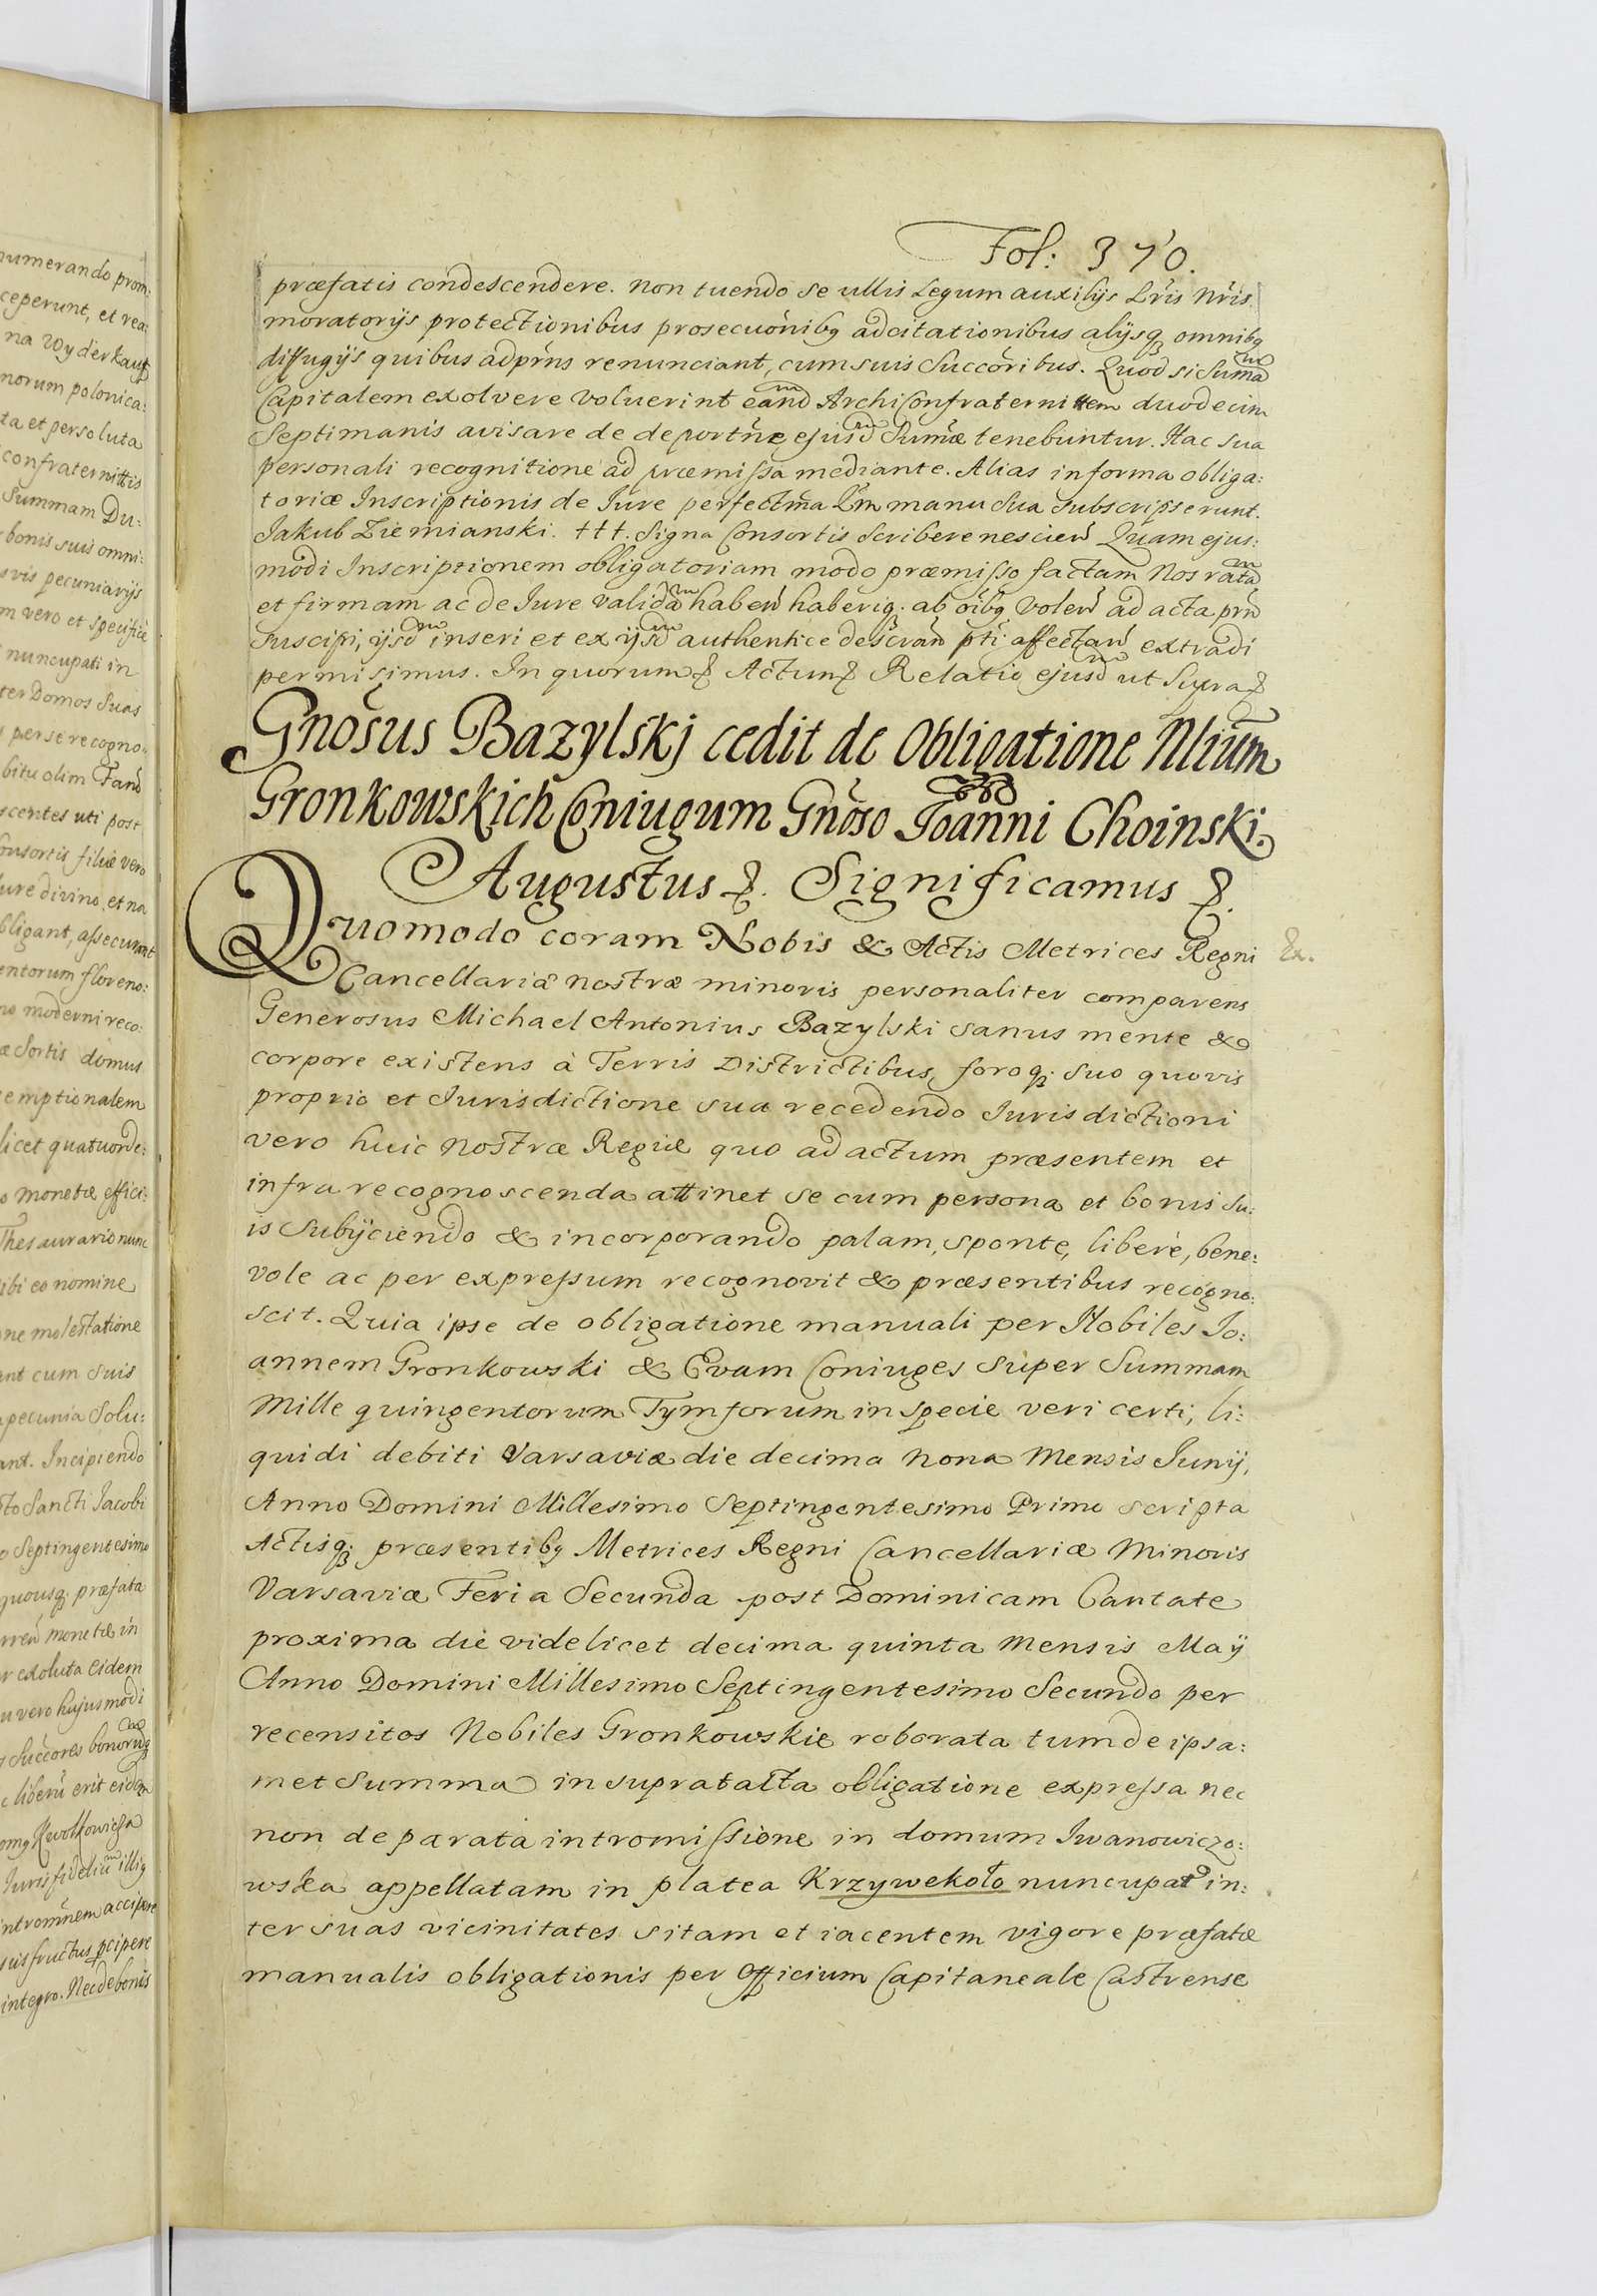 numerando prom:
ceperunt, et rea:
na Wyderkauff
norum polonica:
ta et persoluta
confraternittis
Summam Du:
bonis suis omni:
svis pecuniarijs
m vero et specifice
nuncupati in
ter Domos Suas
per se recogno:
bitu olim Fand
scentes uti post
Consortis filiæ vero
Jure divino, et na
bligant, assecurant
entorum floreno:
no moderni reco:
æ Sortis domus
emptionalem
licet quatuorde:
o monetæ effici:
Thesaurario nunc
ibi eo nomine
ne molestatione
ant cum suis
pecunia Solu:
ant. Incipiendo
sto Sancti Jacobi
o Septingentesimo
quousq; præfata
monetæ in
r exoluta eidem
u vero hujusmodi
Succores bonorũq
c liberũ erit eidem
Juris fidelium illiq
intromñem accipere
suis fructus pcipere
integro. Nec de bonis
Fol: 370.
præfatis condescendere. Non tuendo se ullis Legum auxilijs Lris Nris
moratorijs protectionibus prosecuõnibq adcitationibus alijsq; omnibq
diffugijs quibus ad prñs renunciant, cum suis Succõribus. Quod si Sumã
Capitalem exolvere voluerint eand Archi Confraternittem duodecim
Septimanis avisare de deportñe ejusd Sumæ tenebuntur. Hac sua
personali recognitione ad præmissa mediante. Alias in forma obliga:
toriæ Inscriptionis de Jure perfectma Qm manu sua subscripserunt.
Jakub Ziemianski. ttt. Signa Consortis scribere nescien Quam ejus:
modi Inscriptionem obligatoriam modo præmisso factam Nos ratã
et firmam ac de Jure validã haben haberiq; ab oĩbq volen ad acta prñ
suscipi, ijsd inseri et ex ijsd authentice descran pti affectan extradi
permisimus. In quorum & Actum & Relatio ejusd ut Supra &
Gnosus Bazylskj cedit de Obligatione Nlium
Gronkowskich Coniugum Gnoso Joanni Choinski.
Augustus &. Significamus &.
Quomodo coram Nobis & Actis Metrices Regni
Ex.
Cancellariæ nostræ minoris personaliter comparens
Generosus Michael Antonius Bazylski sanus mente &
corpore existens à Terris Districtibus, foroq; suo quovis
proprio et Jurisdictione sua recedendo Jurisdictioni
vero huic nostræ Regiæ quo ad actum præsentem et
infra recognoscenda attinet se cum persona et bonis su:
is subijciendo & incorporando palam, sponte, liberè, bene:
vole ac per expressum recognovit & præsentibus recogno:
scit. Quia ipse de obligatione manuali per Nobiles Jo:
annem Gronkowski & Evam Coniuges super Summam
Mille quingentorum Tymforum in specie veri certi, li:
quidi debiti Varsaviæ die decima nona Mensis Junij,
Anno Domini Millesimo Septingentesimo Primo scripta
Actisq; præsentibq Metrices Regni Cancellariæ Minoris
Varsaviæ Feria Secunda post Dominicam Cantate
proxima die videlicet decima quinta mensis Maÿ
Anno Domini Millesimo Septingentesimo Secundo per
recensitos Nobiles Gronkowskie roborata tum de ipsa:
met summa in supratacta obligatione expressa nec
non de parata intromissione in domum Iwanowiczo:
wska appellatam in platea Krzywekoło nuncupat in:
ter suas vicinitates sitam et iacentem vigore præfatæ
manualis obligationis per Officium Capitaneale Castrense